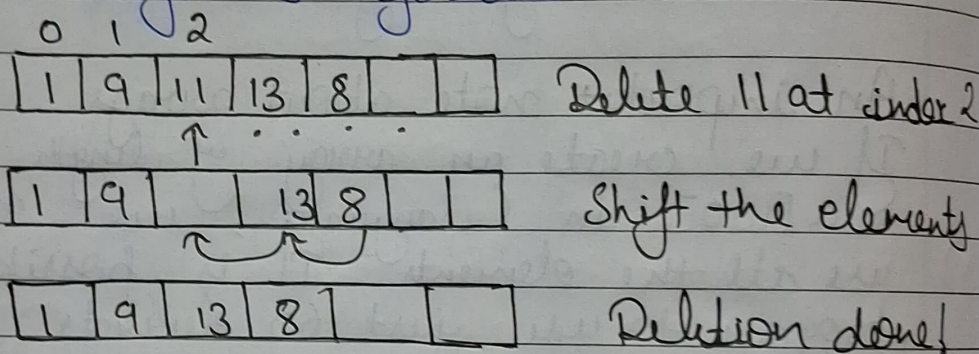 0 1 2
1 9 11 13 8 Delete 11 at index 2
1 9 13 8 Shift the elements
1 9 13 8 Deletion done!